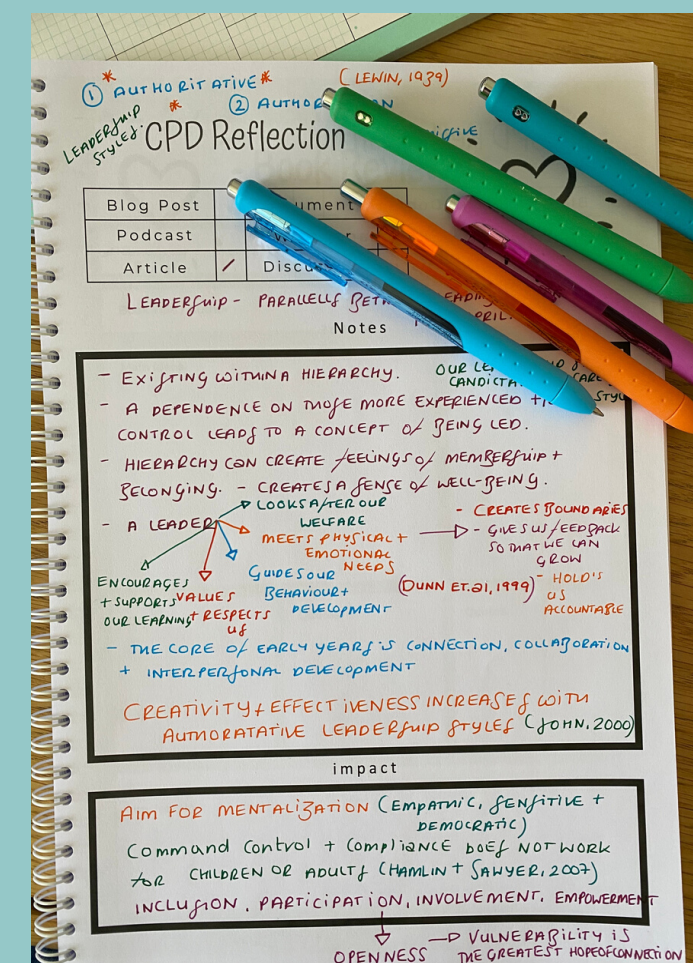 ① AUTHORITATIVE (LEWIN, 1939)
②
LEADERSHIP
STYLES
CPD Reflection
Blog Post
Podcast
Article / 
LEADERSHIP - PARALLELS
Notes
- EXISTING WITHIN A HIERARCHY. OUR
- A DEPENDENCE ON THOSE MORE EXPERIENCED
CONTROL LEADS TO A CONCEPT OF BEING LED.
- HIERARCHY CAN CREATE FEELINGS OF MEMBERSHIP +
BELONGING. - CREATES A SENSE OF WELL-BEING.
- A LEADER
LOOKS AFTER OUR
WELFARE
MEETS PHYSICAL +
EMOTIONAL
NEEDS
GUIDES OUR
BEHAVIOUR +
DEVELOPMENT
VALUES
+ RESPECTS
US
ENCOURAGES
+ SUPPORTS
OUR LEARNING
- CREATES BOUNDARIES
- GIVES US FEEDBACK
SO THAT WE CAN
GROW
- HOLD'S
US
ACCOUNTABLE
(DUNN ET.al, 1999)
- THE CORE OF EARLY YEARS IS CONNECTION, COLLABORATION
+ INTERPERSONAL DEVELOPMENT
CREATIVITY + EFFECTIVENESS INCREASES WITH
AUTHORATATIVE LEADERSHIP STYLES (JOHN, 2000)
impact
AIM FOR MENTALIZATION (EMPATHIC, SENSITIVE +
DEMOCRATIC)
Command Control + Compliance DOES NOT WORK
FOR CHILDREN OR ADULTS (HAMLIN + SAWYER, 2007)
INCLUSION, PARTICIPATION, INVOLVEMENT. EMPOWERMENT
OPENNESS → VULNERABILITY IS
THE GREATEST HOPE OF CONNECTION